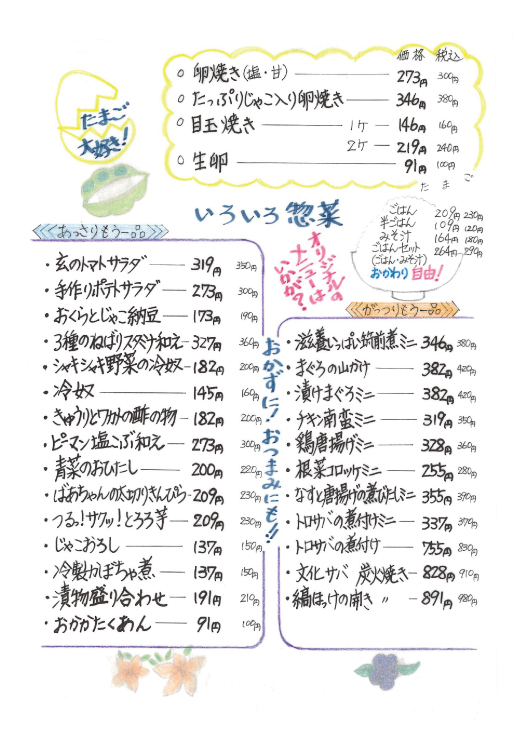 価格 税込
たまご
大好き！
○ 卵焼き(塩・甘) 273円 300円
○ たっぷりじゃこ入り卵焼き 346円 380円
○ 目玉焼き 1ケ 146円 160円
2ケ 219円 240円
○ 生卵 91円 100円
たまご
いろいろ惣菜
オリジナルの
メニューは
いかが？
ごはん 209円 230円
半ごはん 109円 120円
みそ汁 164円 180円
ごはんセット 264円 290円
(ごはん・みそ汁)
おかわり自由！
あっさりもう一品
・玄のトマトサラダ 319円 350円
・手作りポテトサラダ 273円 300円
・おくらとじゃこ納豆 173円 190円
・3種のねばりスタミナ和え 327円 360円
・シャキシャキ野菜の冷奴 182円 200円
・冷奴 145円 160円
・きゅうりとワカメの酢の物 182円 200円
・ピーマン塩こぶ和え 273円 300円
・青菜のおひたし 200円 220円
・ばあちゃんの太切りきんぴら 209円 230円
・つる！サクッ！とろろ芋 209円 230円
・じゃこおろし 137円 150円
・冷製かぼちゃ煮 137円 150円
・漬物盛り合わせ 191円 210円
・おかかたくあん 91円 100円
おかずに！おつまみにも！！
がっつりもう一品
・滋養いっぱい筑前煮ミニ 346円 380円
・まぐろの山かけ 382円 420円
・漬けまぐろミニ 382円 420円
・チキン南蛮ミニ 319円 350円
・鶏唐揚げミニ 328円 360円
・根菜コロッケミニ 255円 280円
・なすと唐揚げの煮びたしミニ 355円 390円
・トロサバの煮付けミニ 337円 370円
・トロサバの煮付け 755円 830円
・文化サバ 炭火焼き 828円 910円
・縞ほっけの開き 〃 891円 980円